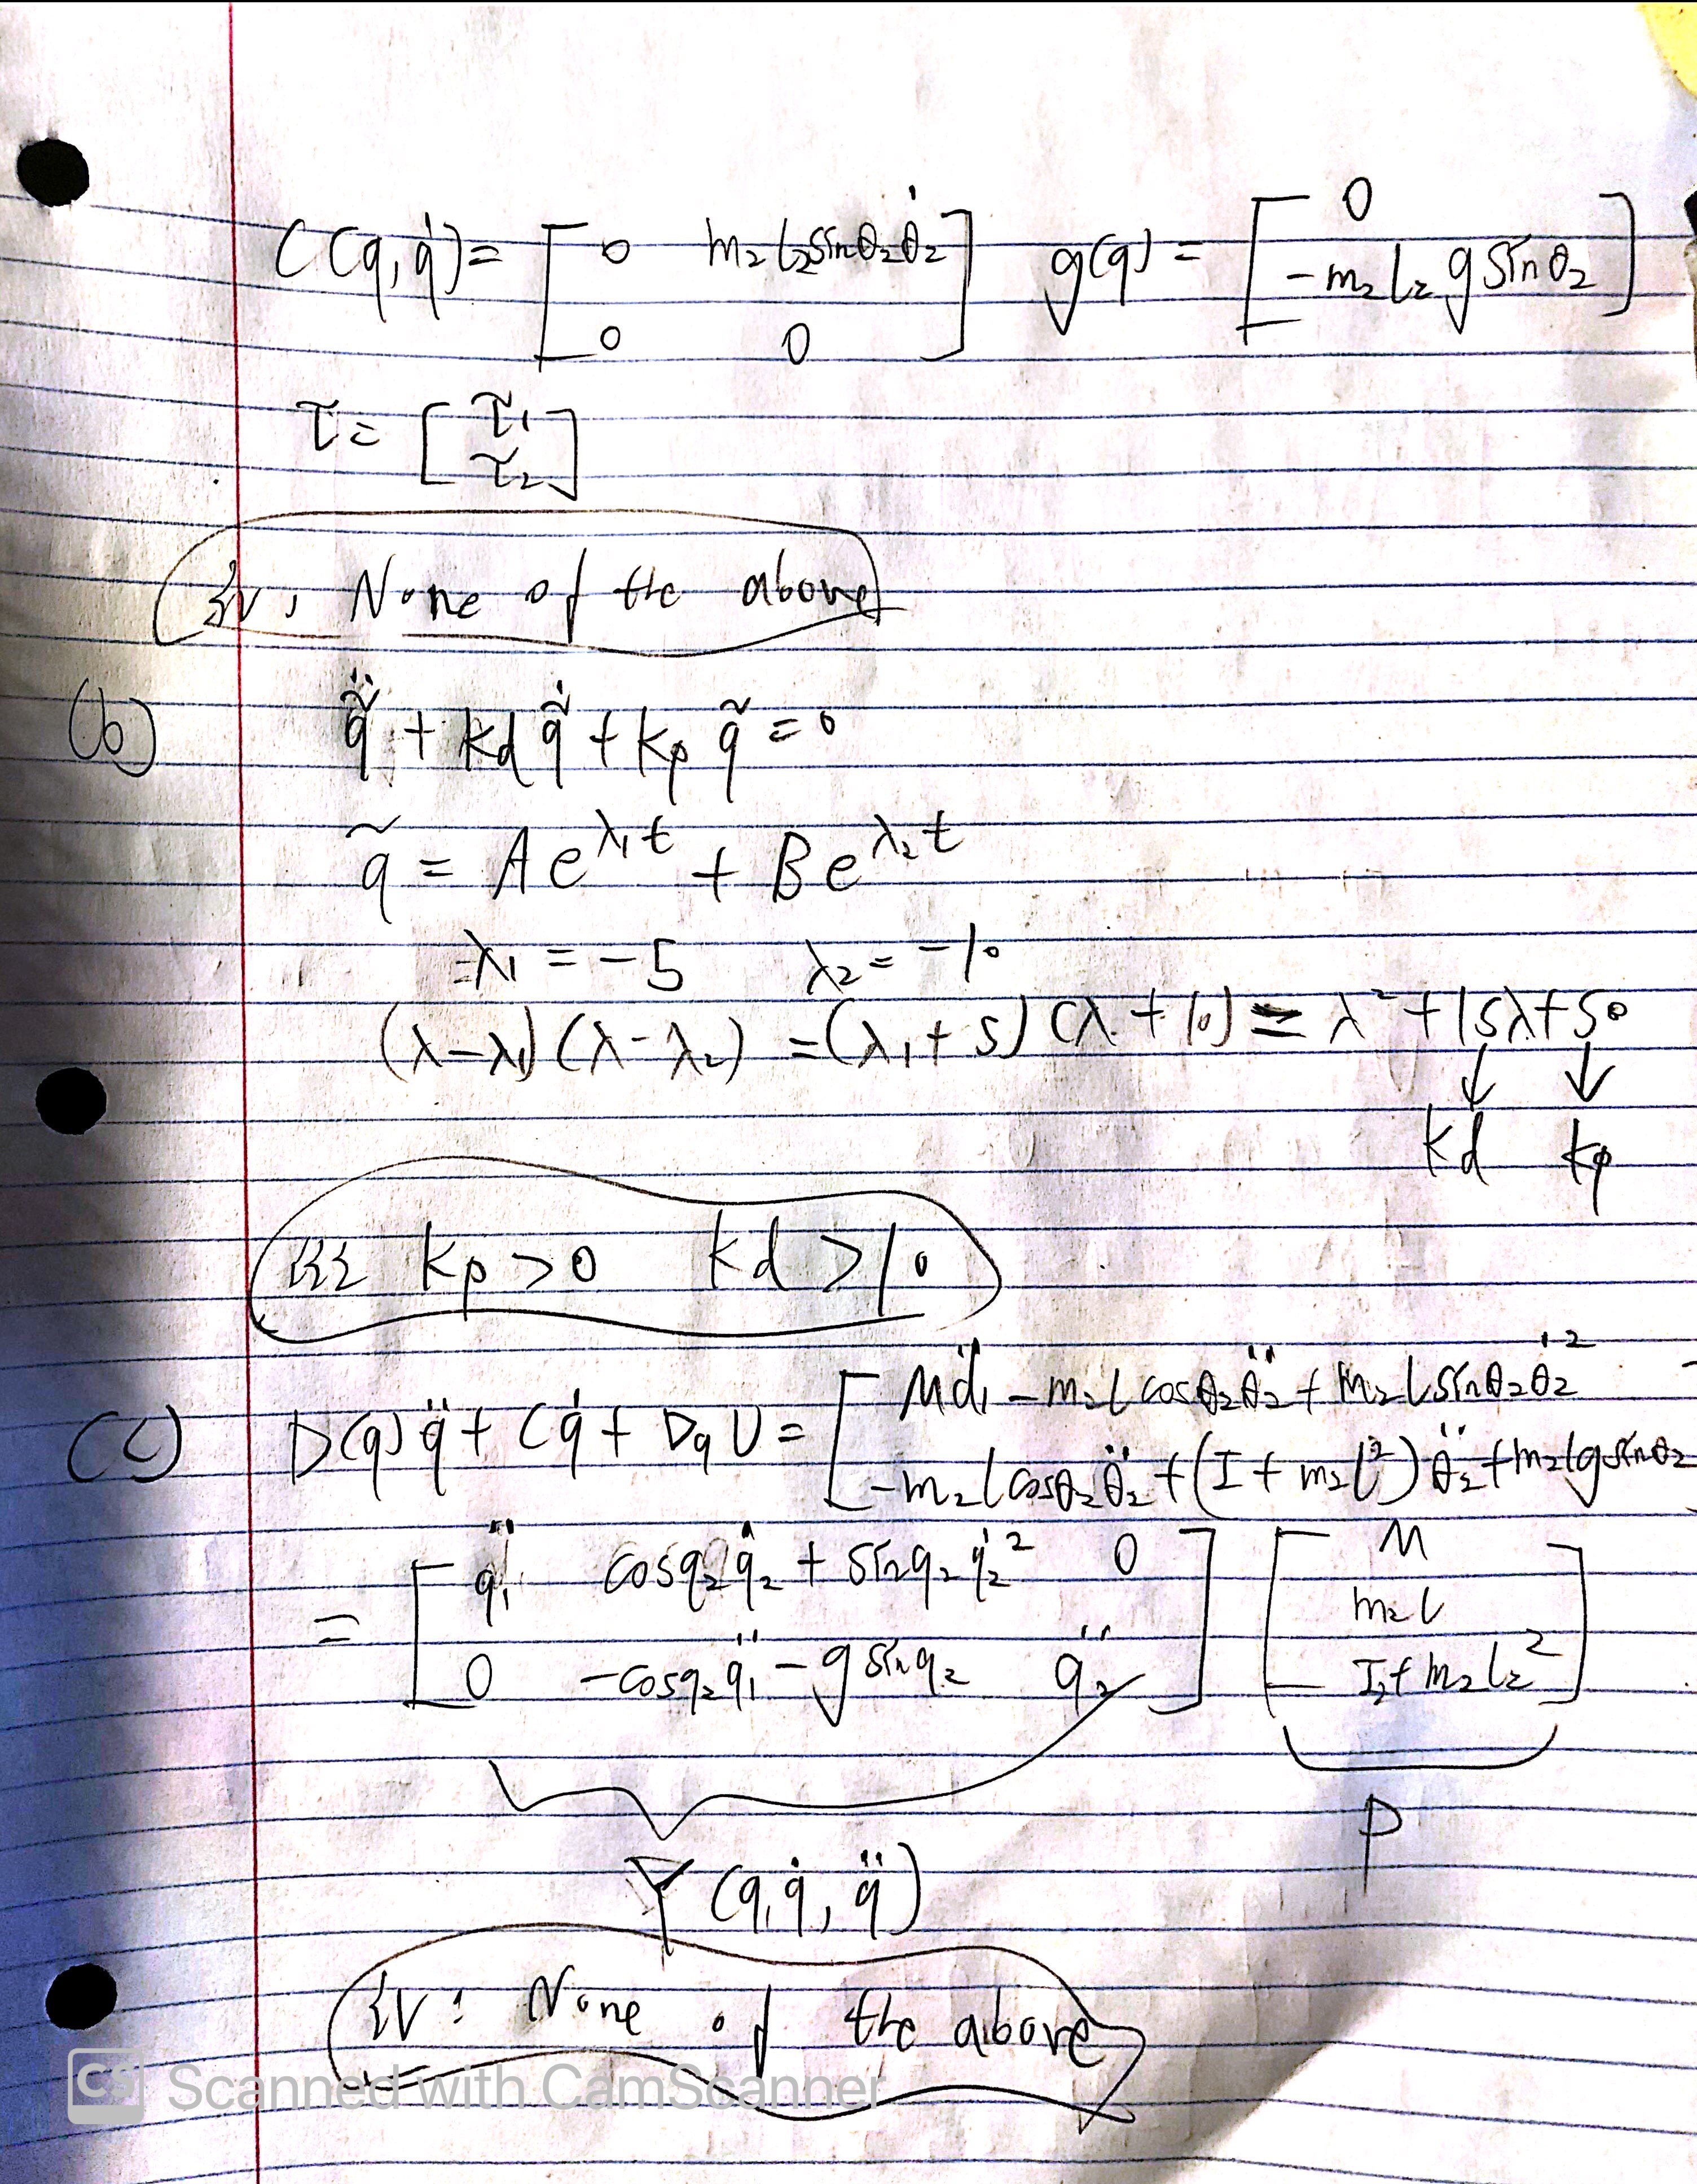 C(q,q̇) = [ 0 m₂l₂sinθ₂θ̇₂ ; 0 0 ] g(q) = [ 0 ; -m₂l₂gsinθ₂ ]
τ = [ τ₁ ; τ₂ ]
iv, None of the above
(b) q̃̈ + kd q̃̇ + kp q̃ = 0
q̃ = Ae^{λ₁t} + Be^{λ₂t}
λ₁ = -5 λ₂ = -10
(λ-λ₁)(λ-λ₂) = (λ₁+5)(λ+10) = λ²+15λ+50
↓ ↓
kd kp
iii kp>0 kd>10
(c) D(q)q̈ + Cq̇ + DqU = [ Md̈₁ - m₂l cosθ₂θ̈₂ + m₂l sinθ₂θ̇₂² ; -m₂l cosθ₂θ̈₂ + (I + m₂l²)θ̈₂ + m₂lg sinθ₂
= [ q̈₁ cosq₂q̈₂ + sinq₂q̇₂² 0 ; 0 -cosq₂q̈₁ - g sinq₂ q̈₂ ] [ M ; m₂l ; I₂+m₂l₂² ]
P
Y(q,q̇,q̈)
iv: None of the above
CS Scanned with CamScanner